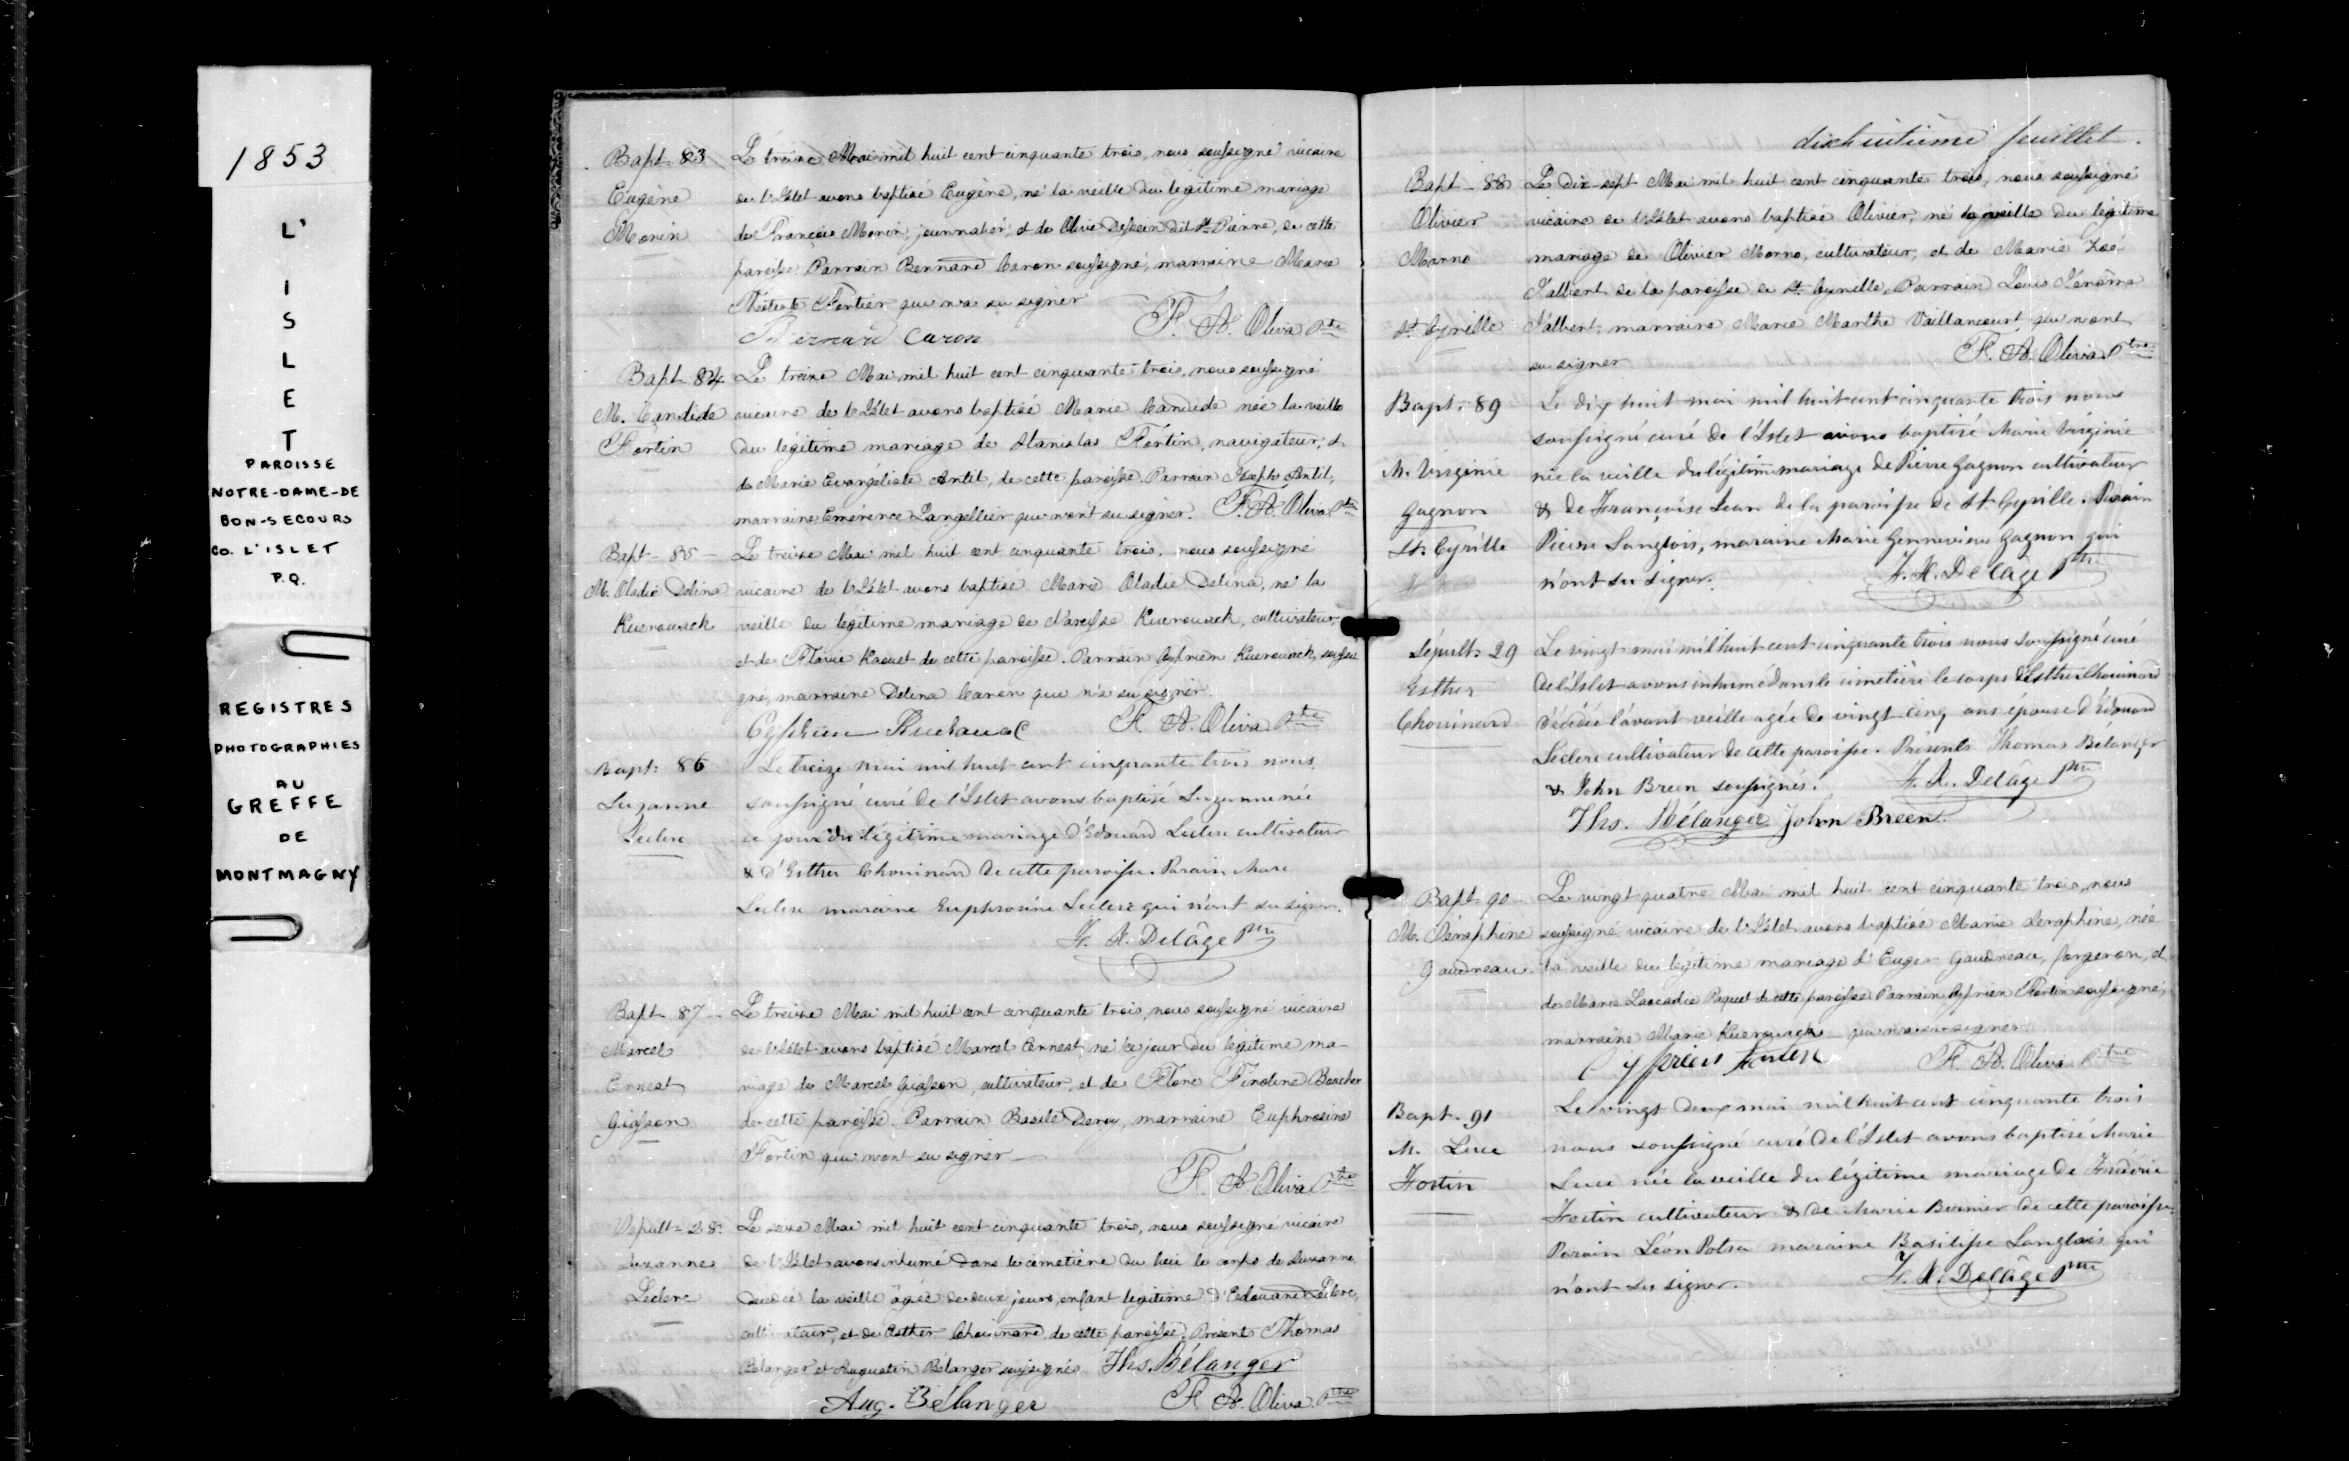 1853
L'
I
S
L
E
T
PAROISSE
NOTRE-DAME-DE
BON-SECOURS
CO. L'ISLET
P.Q.
REGISTRES
PHOTOGRAPHIES
AU
GREFFE
DE
MONTMAGNY
Bapt. 83
Eugène
Morin
Le treize Mai mil huit cent cinquante trois, nous soussigné vicaire
de l'Islet avons baptisé Eugène, né la veille du légitime mariage
de François Morin, journalier, et de Olive dit St Pierre, de cette
paroisse Parrain Bernard Caron soussigné, marraine Marie
Fortier qui n'a su signer
Bernard Caron F. A. Oliva Ptre
Bapt. 84
M. Candide
Fortin
Le treize Mai mil huit cent cinquante trois, nous soussigné
vicaire de l'Islet avons baptisé Marie Candide née la veille
du légitime mariage de Stanislas Fortin, navigateur, et
de Marie Evangéliste Antil, de cette paroisse. Parrain Joseph Antil,
marraine Emérence Langellier qui n'ont su signer. F. A. Oliva Ptre
Bapt - 85 -
M. Oladie Delina
Kuerouack
Le treize Mai mil huit cent cinquante trois, nous soussigné
vicaire de l'Islet avons baptisé Marie Oladie Delina, né la
veille du légitime mariage de Narcisse Kuerouack, cultivateur,
et de Flavie Paquet de cette paroisse. Parrain Cyprien Kuerouack, soussi
gné, marraine Delina Caron qui n'a su signer.
F. A. Oliva Ptre
Bapt. 86
Suzanne
Leclerc
Le treize mai mil huit cent cinquante trois nous
soussigné curé de l'Islet avons baptisé Suzanne née
ce jour du légitime mariage d'Edouard Leclerc cultivateur
& d'Esther Chouinard de cette paroisse. Parain Marc
Leclerc maraine Euphrosine Leclerc qui n'ont su signer.
F. X. Delâge Ptre
Bapt. 87 -
Marcel
Ernest
Giasson
Le treize Mai mil huit cent cinquante trois, nous soussigné vicaire
de l'Islet avons baptisé Marcel Ernest, né ce jour du légitime ma-
riage de Marcel Giasson, cultivateur, et de Flore Boucher
de cette paroisse. Parrain Basile Deroy, marraine Euphrosine
Fortin qui n'ont su signer -
F. A. Oliva Ptre
Sépult - 28.
Suzanne
Leclerc
Le seize Mai mil huit cent cinquante trois, nous soussigné vicaire
de l'Islet avons inhumé dans le cimetière du lieu le corps de Suzanne
décédée la veille âgée de deux jours, enfant légitime d'Edouard Leclerc,
cultivateur, et de Esther Chouinard de cette paroisse. Présents Thomas
Bélanger et Augustin Bélanger soussignés Ths. Bélanger
Aug. Bélanger F. A. Oliva Ptre
dixhuitième feuillet.
Bapt - 88
Olivier
Morno
St Cyrille
Le dix-sept Mai mil huit cent cinquante trois, nous soussigné
vicaire de l'Islet avons baptisé Olivier, né la veille du légitime
mariage de Olivier Morno, cultivateur, et de Marie Zoé
Jalbert de la paroisse de St Cyrille. Parrain Louis Jérôme
Jalbert, marraine Marie Marthe Vaillancourt qui n'ont
su signer F. A. Oliva Ptre
Bapt. 89
M. Virginie
Gagnon
St. Cyrille
Le dix huit mai mil huit cent cinquante trois nous
soussigné curé de l'Islet avons baptisé Marie Virginie
née la veille du légitime mariage de Pierre Gagnon cultivateur
& de Françoise Jean de la paroisse de St Cyrille. Parain
Pierre Langlois, maraine Marie Gennevieve Gagnon qui
n'ont su signer. F. X. Delâge Ptre
Sépult. 29
Esther
Chouinard
Le vingt mai mil huit cent cinquante trois nous soussigné curé
de l'Islet avons inhumé dans le cimetière le corps d'Esther Chouinard
décédée l'avant veille agée de vingt cinq ans épouse d'Edouard
Leclerc cultivateur de cette paroisse. Présents Thomas Bélanger
& John Breen soussignés. F. X. Delâge Ptre
Ths. Bélanger John Breen.
Bapt. 90
M. Séraphine
Gaudreau
Le vingt quatre Mai mil huit cent cinquante trois, nous
soussigné vicaire de l'Islet avons baptisé Marie Séraphine, née
la veille du légitime mariage d'Euger Gaudreau, forgeron, et
de Marie Léocadie Paquet de cette paroisse Parrain Cyprien Fortin soussigné,
marraine Marie Kuerouack qui n'a su signer
Cyprien Fortin F. A. Oliva Ptre
Bapt. 91
M. Luce
Fortin
Le vingt deux mai mil huit cent cinquante trois
nous soussigné curé de l'Islet avons baptisé Marie
Luce née la veille du légitime mariage de Frédéric
Fortin cultivateur & de Marie Bernier de cette paroisse.
Parain Léon Potra maraine Basilisse Langlois qui
n'ont su signer. F. X. Delâge Ptre